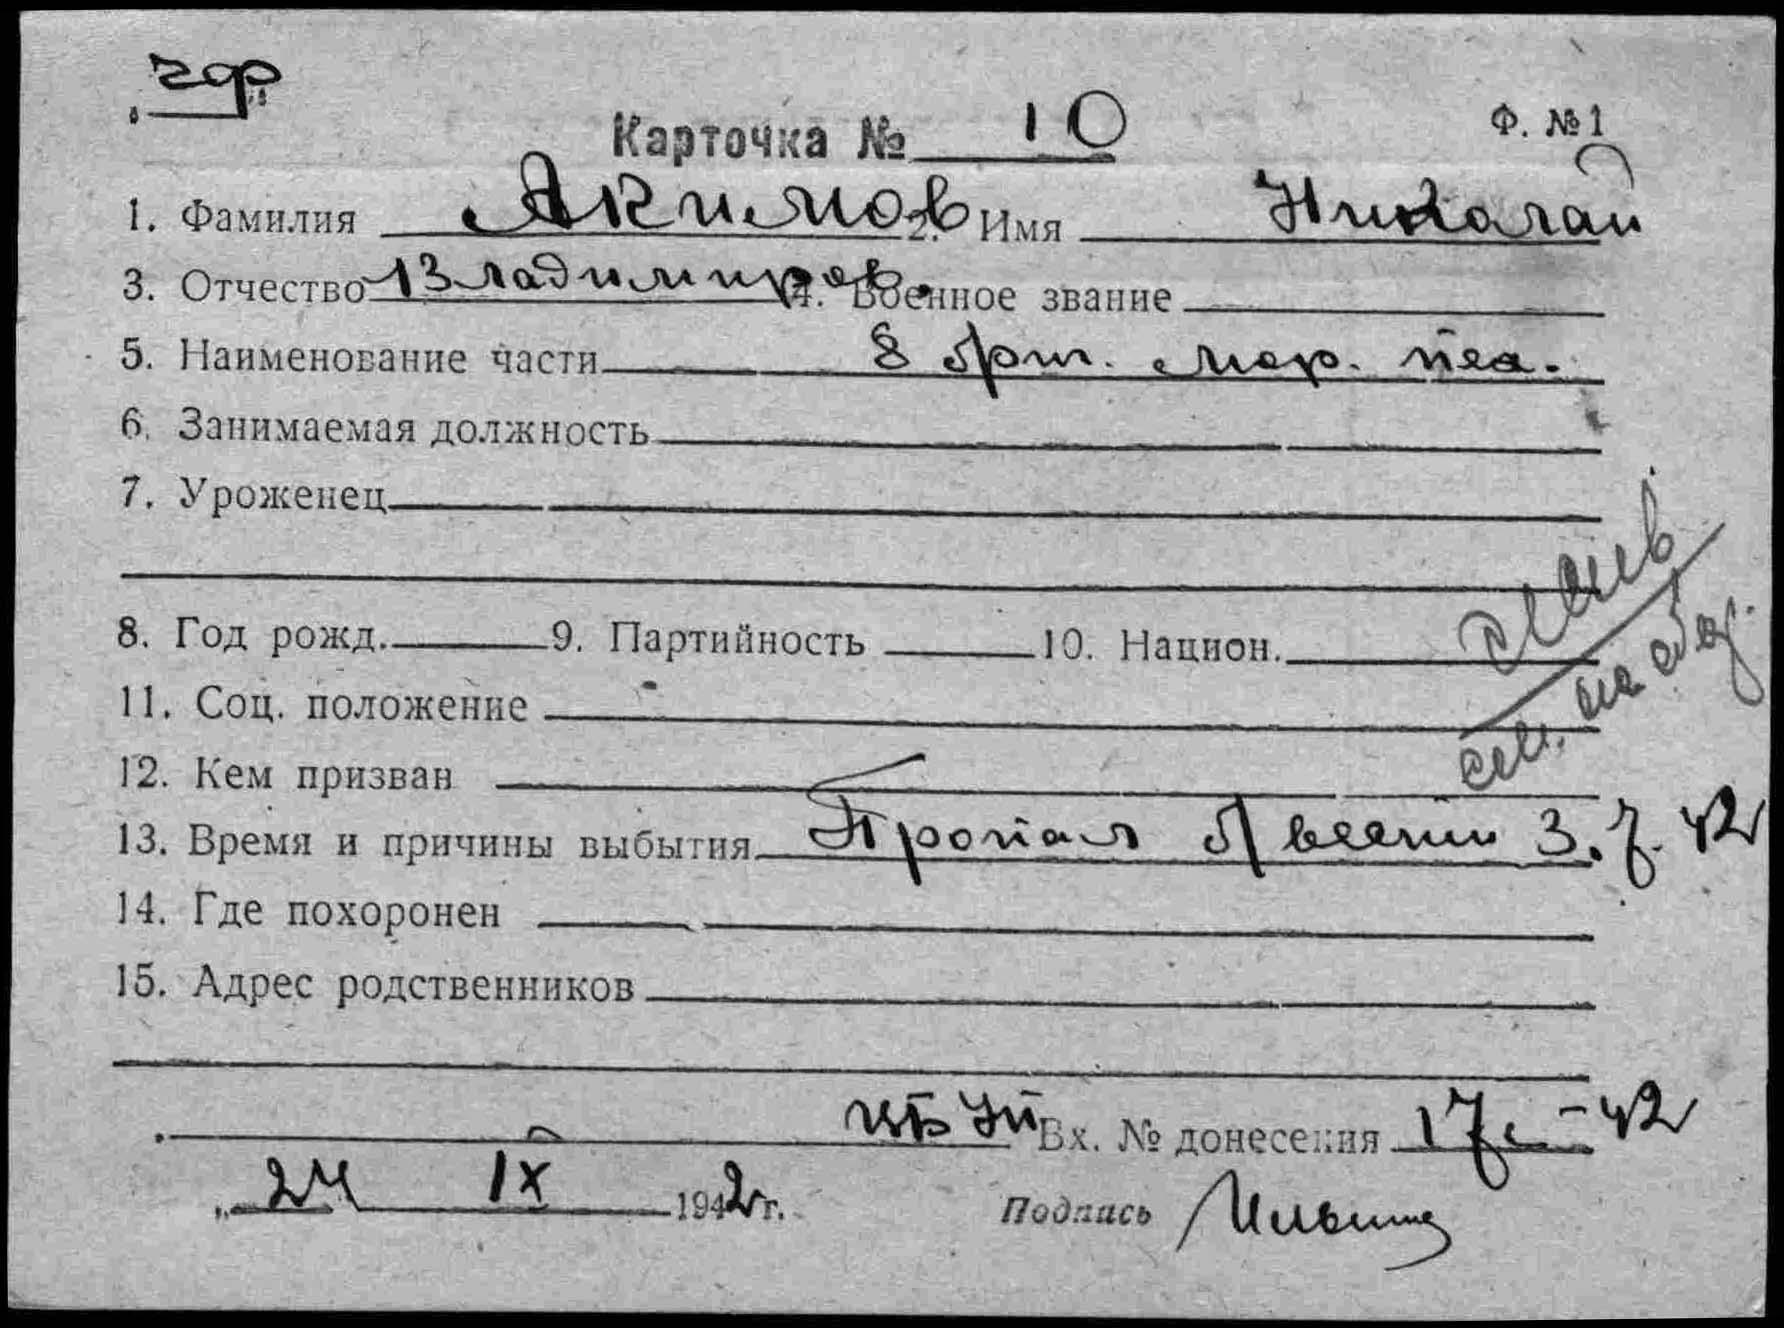 чф
Карточка № 10
Ф. № 1
1. Фамилия Акимов 2. Имя Николай
3. Отчество Владимиров. 4. Военное звание
5. Наименование части 8 бриг. мор. пех.
6. Занимаемая должность
7. Уроженец
8. Год рожд. 9. Партийность 10. Национ.
11. Соц. положение
см. на обор.
12. Кем призван
13. Время и причины выбытия Пропал б/вести 3.7.42
14. Где похоронен
15. Адрес родственников
Вх. № донесения 17с-42
„24 IX 1942 г. Подпись